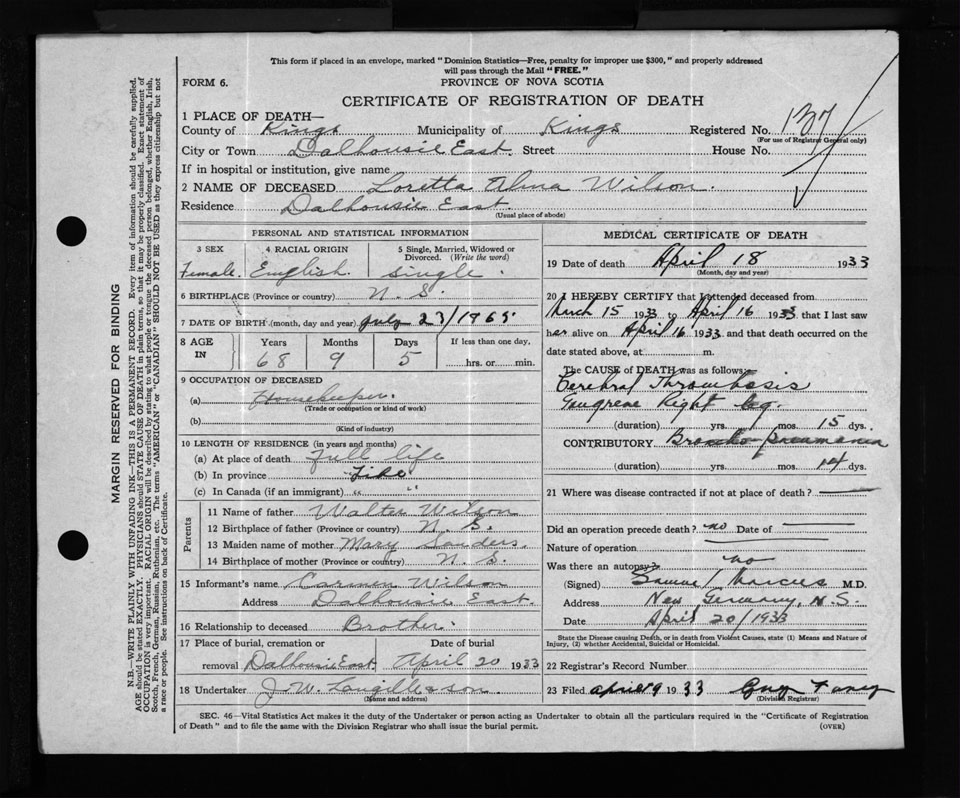 This form if placed in an envelope, marked "Dominion Statistics—Free, penalty for improper use $300," and properly addressed
will pass through the Mail "FREE."
FORM 6.
PROVINCE OF NOVA SCOTIA
CERTIFICATE OF REGISTRATION OF DEATH
1 PLACE OF DEATH—
County of Kings Municipality of Kings Registered No. 137
(For use of Registrar General only)
City or Town Dalhousie East Street House No.
If in hospital or institution, give name
2 NAME OF DECEASED Loretta Alma Wilson.
Residence Dalhousie East
(Usual place of abode)
PERSONAL AND STATISTICAL INFORMATION
3 SEX 4 RACIAL ORIGIN 5 Single, Married, Widowed or Divorced. (Write the word)
Female. English. single.
6 BIRTHPLACE (Province or country) N. S.
7 DATE OF BIRTH (month, day and year) July 23/1865
8 AGE IN Years Months Days If less than one day,
68 9 5 hrs. or min.
9 OCCUPATION OF DECEASED
(a) Housekeeper.
(Trade or occupation or kind of work)
(b)
(Kind of industry)
10 LENGTH OF RESIDENCE (in years and months)
(a) At place of death Full life
(b) In province Life
(c) In Canada (if an immigrant) " "
Parents
11 Name of father Walter Wilson
12 Birthplace of father (Province or country) N. S.
13 Maiden name of mother Mary Sanders.
14 Birthplace of mother (Province or country) N. S.
15 Informant's name Carmen Wilson
Address Dalhousie East.
16 Relationship to deceased Brother.
17 Place of burial, cremation or removal Dalhousie East Date of burial April 20 1933
18 Undertaker J. W. & son.
(Name and address)
MEDICAL CERTIFICATE OF DEATH
19 Date of death April 18 1933
(Month, day and year)
20 I HEREBY CERTIFY that I attended deceased from
March 15 1933 to April 16 1933 that I last saw
her alive on April 16 1933 and that death occurred on the
date stated above, at m.
The CAUSE of DEATH was as follows:
Cerebral Thrombosis
Gangrene Right Leg.
(duration) yrs. mos. 15 dys.
CONTRIBUTORY Broncho pneumonia
(duration) yrs. mos. 14 dys.
21 Where was disease contracted if not at place of death?
Did an operation precede death? no Date of
Nature of operation
Was there an autopsy? no
(Signed) Samuel Marcus M.D.
Address New Germany, N. S.
Date April 20/1933
State the Disease causing Death, or in death from Violent Causes, state (1) Means and Nature of
Injury, (2) whether Accidental, Suicidal or Homicidal.
22 Registrar's Record Number
23 Filed April 19 1933 Guy
(Division Registrar)
SEC. 46—Vital Statistics Act makes it the duty of the Undertaker or person acting as Undertaker to obtain all the particulars required in the "Certificate of Registration
of Death" and to file the same with the Division Registrar who shall issue the burial permit. (OVER)
MARGIN RESERVED FOR BINDING
N.B.—WRITE PLAINLY WITH UNFADING INK—THIS IS A PERMANENT RECORD. Every item of information should be carefully supplied.
AGE should be stated EXACTLY. PHYSICIANS should STATE CAUSE OF DEATH in plain terms, so that it may be properly classified. Exact statement of
OCCUPATION is very important. RACIAL ORIGIN will be described by stating to what people or tongue the deceased person belonged, whether English, Irish,
Scotch, French, German, Russian, Ruthenian, etc. The terms "AMERICAN" or "CANADIAN" SHOULD NOT BE USED as they express citizenship but not
a race or people. See instructions on back of Certificate.